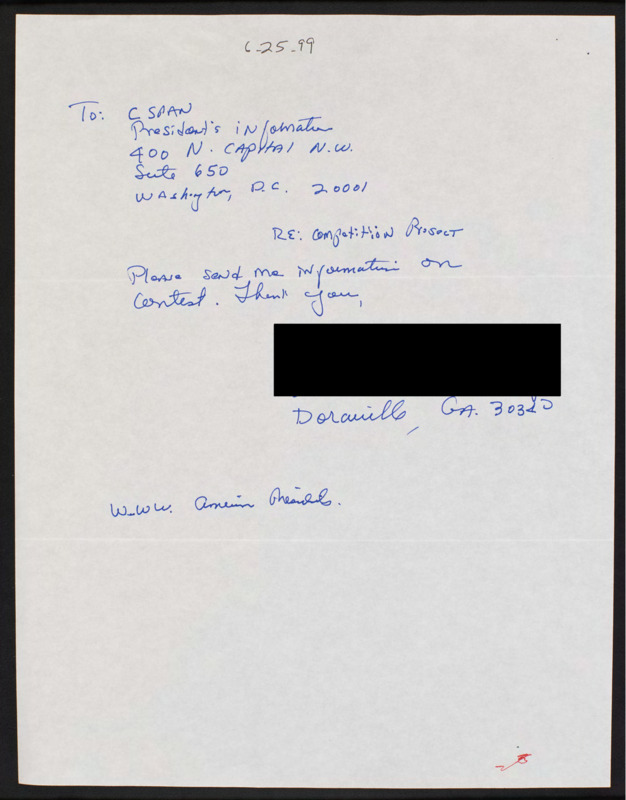 6-25-99
To: C SPAN
President's information
400 N. CAPITAL N.W.
Suite 650
Washington, D.C. 20001
RE: Competition Project
Please send me information on
Contest. Thank you,
Doraville, GA. 30340
W.W.W. American Presidents.